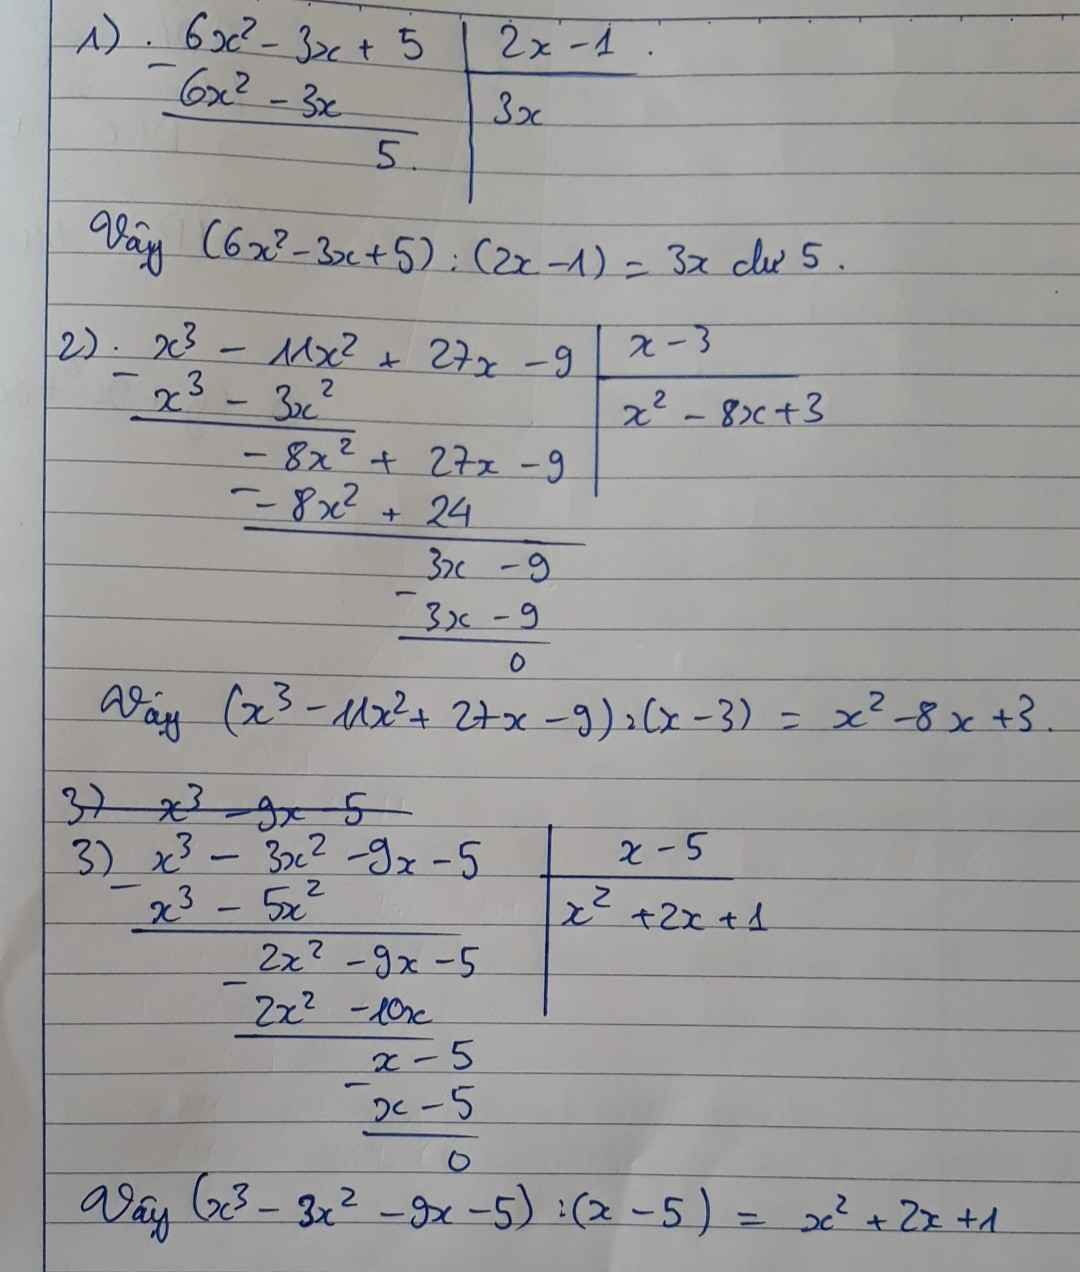 1) . 6x² - 3x + 5 | 2x - 1 .
- 6x² - 3x | 3x
5 .
Vậy (6x² - 3x + 5) : (2x - 1) = 3x dư 5 .
2) . x³ - 11x² + 27x - 9 | x - 3
- x³ - 3x² | x² - 8x + 3
- 8x² + 27x - 9
- - 8x² + 24
3x - 9
- 3x - 9
0
Vậy (x³ - 11x² + 27x - 9) : (x - 3) = x² - 8x + 3 .
3) x³ - 9x 5
3) x³ - 3x² - 9x - 5 | x - 5
- x³ - 5x² | x² + 2x + 1
2x² - 9x - 5
- 2x² - 10x
x - 5
- x - 5
0
Vậy (x³ - 3x² - 9x - 5) : (x - 5) = x² + 2x + 1